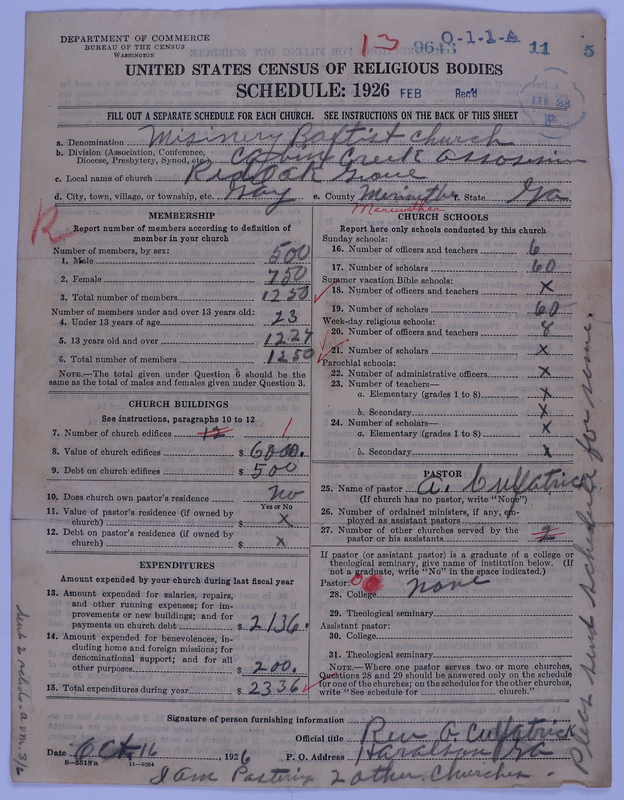 DEPARTMENT OF COMMERCE
BUREAU OF THE CENSUS
WASHINGTON
13 9643 O-1-1-A 11 5
UNITED STATES CENSUS OF RELIGIOUS BODIES
SCHEDULE: 1926 FEB Rec'd
FEB 28
FILL OUT A SEPARATE SCHEDULE FOR EACH CHURCH. SEE INSTRUCTIONS ON THE BACK OF THIS SHEET
a. Denomination Misinery Baptist Church
b. Division (Association, Conference, Diocese, Presbytery, Synod, etc.) Creek
c. Local name of church Red Oak Grove
d. City, town, village, or township, etc. Gay e. County Meriwether f. State Ga
Meriwether
R
MEMBERSHIP
Report number of members according to definition of member in your church
Number of members, by sex:
1. Male 500
2. Female 750
3. Total number of members 1250
Number of members under and over 13 years old:
4. Under 13 years of age 23
5. 13 years old and over 1227
6. Total number of members 1250
NOTE.—The total given under Question 6 should be the same as the total of males and females given under Question 3.
CHURCH BUILDINGS
See instructions, paragraphs 10 to 12
7. Number of church edifices 12 1
8. Value of church edifices $ 6000.
9. Debt on church edifices $ 500
10. Does church own pastor's residence no
Yes or No
11. Value of pastor's residence (if owned by church) $ x
12. Debt on pastor's residence (if owned by church) $ x
EXPENDITURES
Amount expended by your church during last fiscal year
13. Amount expended for salaries, repairs, and other running expenses; for improvements or new buildings; and for payments on church debt $ 2136.
14. Amount expended for benevolences, including home and foreign missions; for denominational support; and for all other purposes $ 200.
15. Total expenditures during year $ 2336
CHURCH SCHOOLS
Report here only schools conducted by this church
Sunday schools:
16. Number of officers and teachers 6
17. Number of scholars 60
Summer vacation Bible schools:
18. Number of officers and teachers x
19. Number of scholars 60
Week-day religious schools:
20. Number of officers and teachers 8
21. Number of scholars x
Parochial schools:
22. Number of administrative officers x
23. Number of teachers—
a. Elementary (grades 1 to 8) x
b. Secondary x
24. Number of scholars—
a. Elementary (grades 1 to 8) x
b. Secondary x
PASTOR
25. Name of pastor a. Culpatrick
(If church has no pastor, write "None")
26. Number of ordained ministers, if any, employed as assistant pastors
27. Number of other churches served by the pastor or his assistants 2
If pastor (or assistant pastor) is a graduate of a college or theological seminary, give name of institution below. (If not a graduate, write "No" in the space indicated.)
Pastor:
28. College none
29. Theological seminary
Assistant pastor:
30. College
31. Theological seminary
NOTE.—Where one pastor serves two or more churches, Questions 28 and 29 should be answered only on the schedule for one of the churches; on the schedules for the other churches, write "See schedule for church."
Signature of person furnishing information
Official title Rev. a Culpatrick
Date Oct 16, 1926 P. O. Address Haralson Ga
8-5518a 11-9054
I am Pastering 2 other Churches.
Pleas send schedule for same.